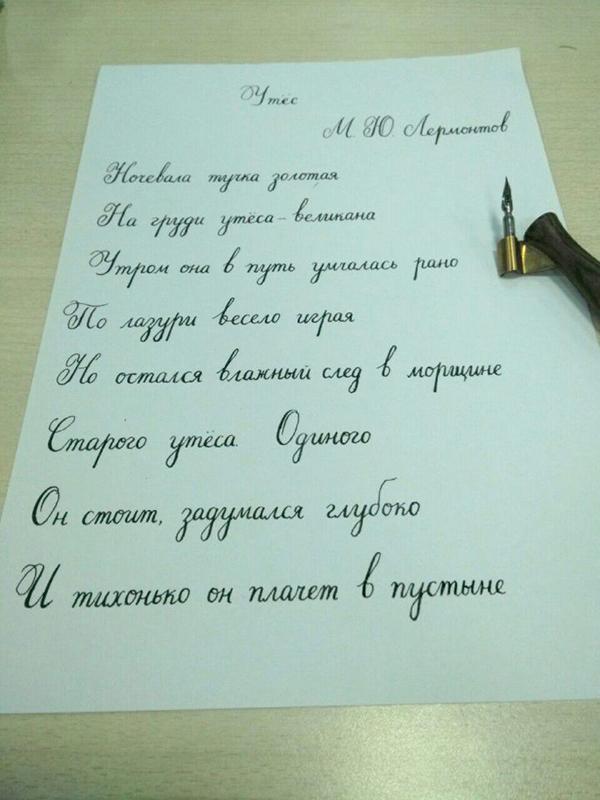 Утёс
М. Ю. Лермонтов
Ночевала тучка золотая
На груди утёса - великана
Утром она в путь умчалась рано
По лазури весело играя
Но остался влажный след в морщине
Старого утёса. Одиного
Он стоит, задумался глубоко
И тихонько он плачет в пустыне